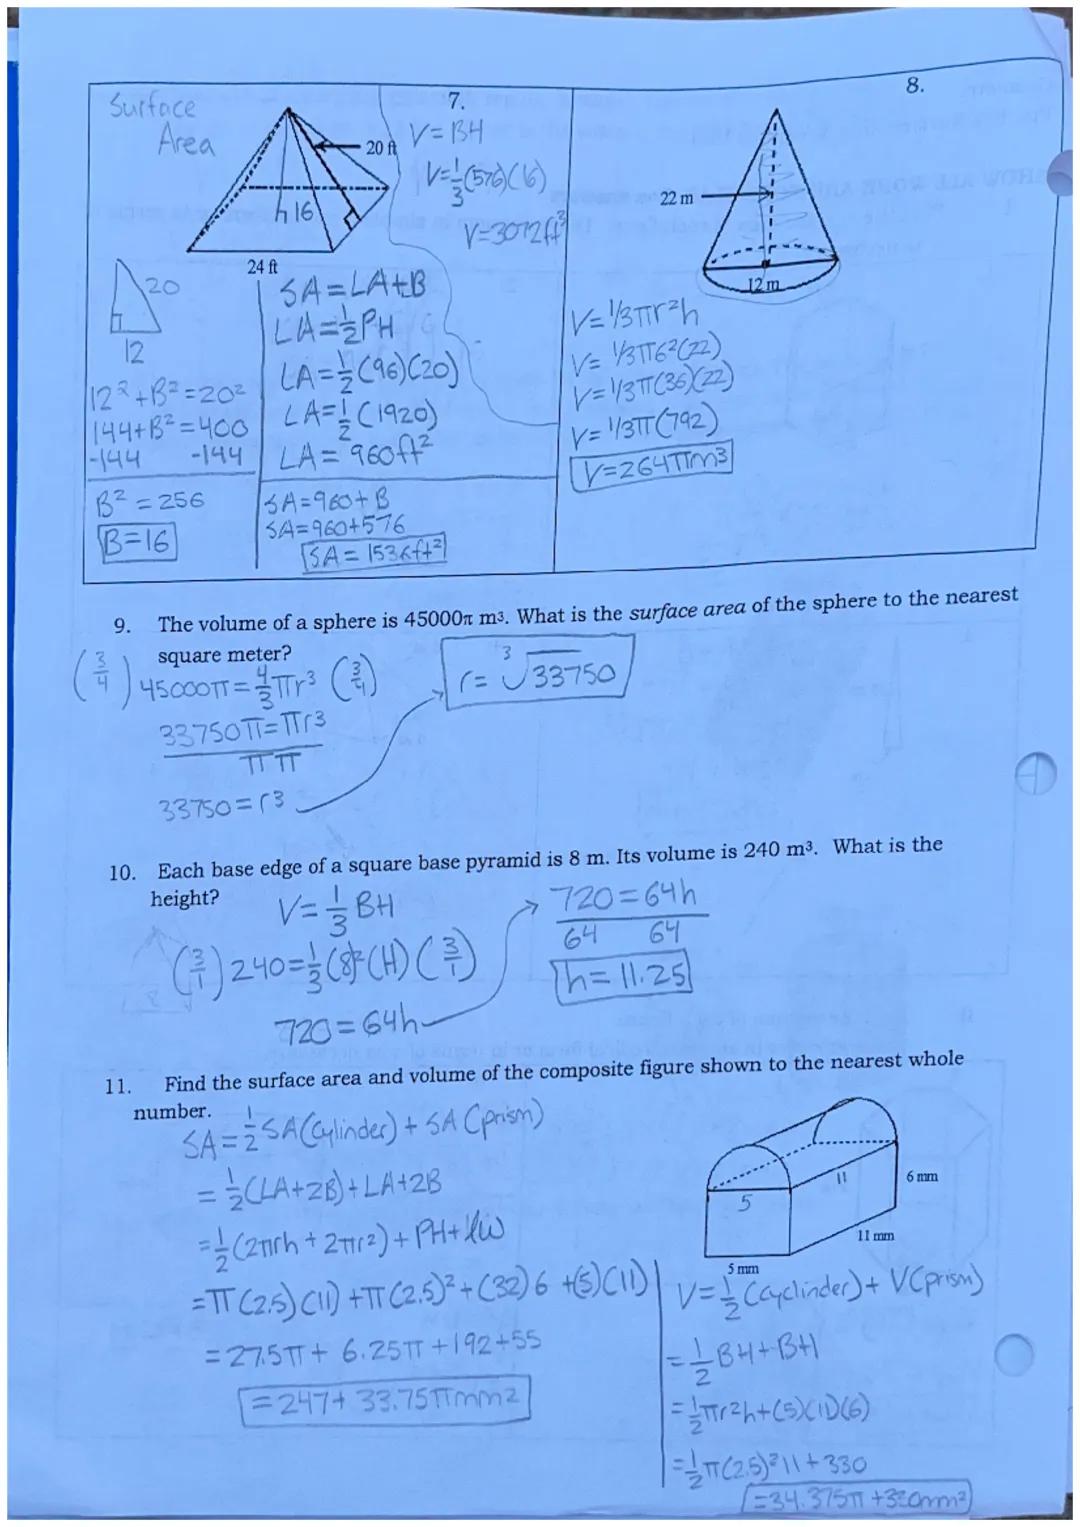 Surface
Area
20 ft
h 16
24 ft
20
12
12² + B² = 20²
144+B² = 400
-144 -144
B² = 256
B=16
SA=LA+B
LA=½PH
LA=½(96)(20)
LA=½(1920)
LA= 960ft²
SA=960+B
SA=960+576
SA= 1536ft²
7.
V= BH
V=⅓(576)(16)
V=3072ft³
8.
22 m
12 m
V=⅓πr²h
V= ⅓π6²(22)
V=⅓π(36)(22)
V=⅓π(792)
V=264πm³
9. The volume of a sphere is 45000π m³. What is the surface area of the sphere to the nearest
square meter?
(3/4) 45000π=4/3πr³ (3/4)
33750π=πr³
π π
33750=r³
r= ³√33750
10. Each base edge of a square base pyramid is 8 m. Its volume is 240 m³. What is the
height?
V=⅓BH
(3/1) 240=⅓(8)²(H)(3/1)
720=64h
720=64h
64 64
h=11.25
11. Find the surface area and volume of the composite figure shown to the nearest whole
number.
SA=½SA(Cylinder)+SA(prism)
=½(LA+2B)+LA+2B
=½(2πrh+2πr²)+PH+lw
=π(2.5)(11)+π(2.5)²+(32)6+(5)(11)
=27.5π+6.25π+192+55
=247+33.75πmm²
5
11
6 mm
11 mm
5 mm
V=½(cyclinder)+V(prism)
=½BH+BH
=½πr²h+(5)(11)(6)
=½π(2.5)²11+330
=34.375π+330mm²